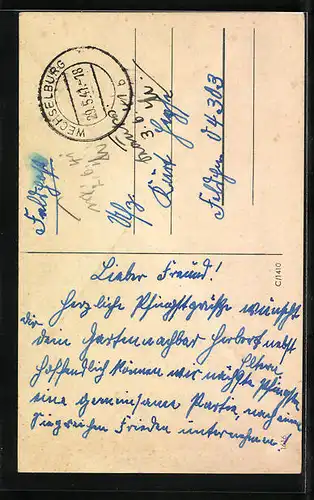 Feldpost
WECHSELBURG
29.5.41.-18
Kurt
Feldpn 04303
C/1410
Lieber Freund!
Herzliche Pfingstgrüße wünscht
Dir dein Gartennachbar Herbert nebst
Eltern
Hoffentlich können wir nächste Pfingsten
eine gemeinsame Partie nach einem
Siegreichen Frieden unternehmen!